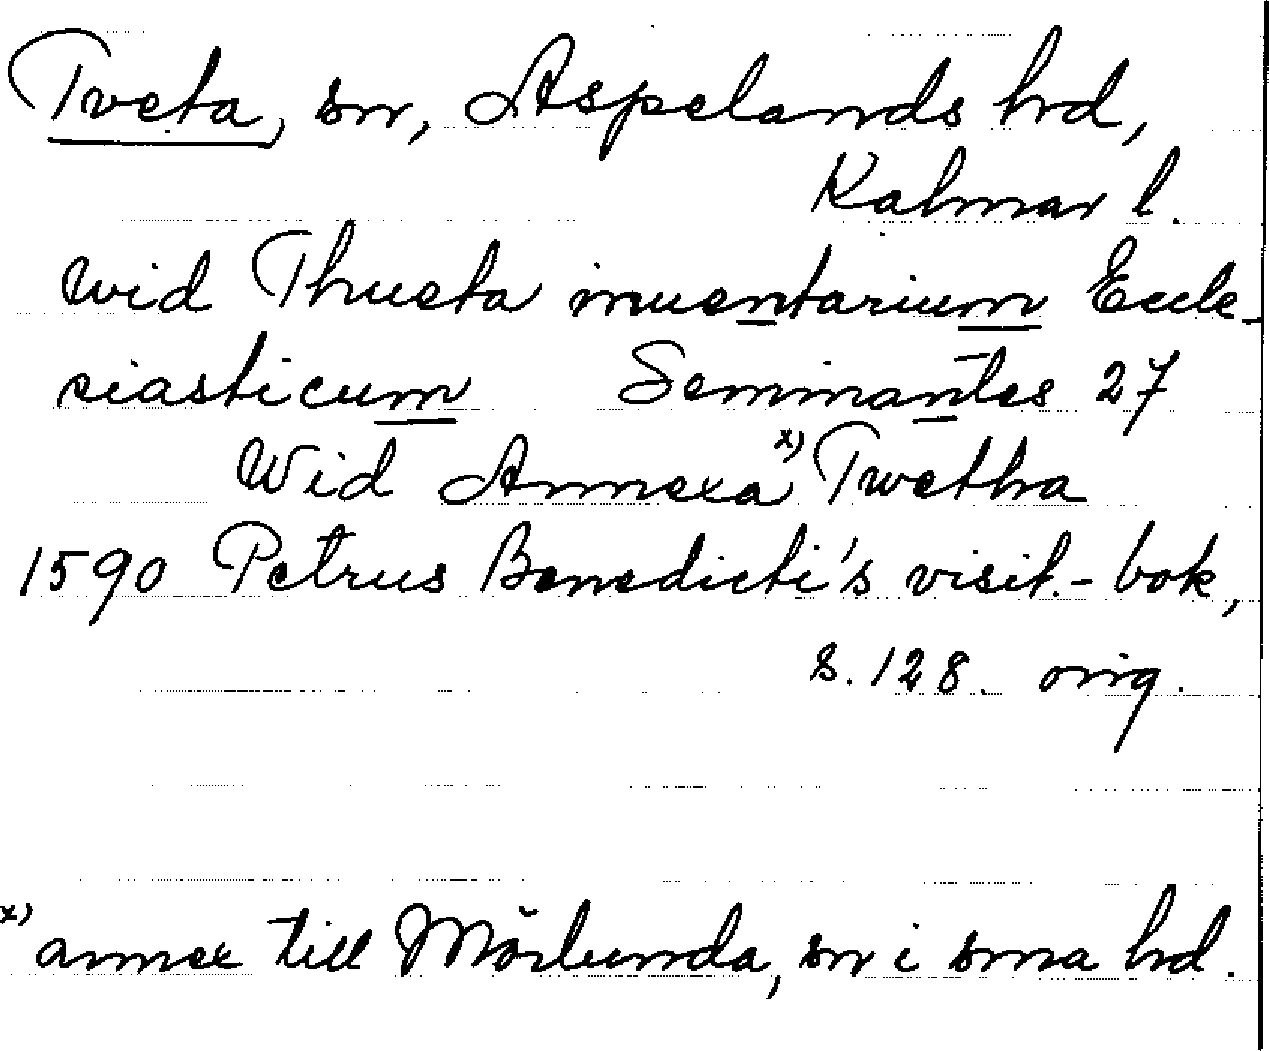 Tveta, sn, Aspelands hrd,
Kalmar l.
wid Thueta inuentarium Eccle-
siasticum Seminantes 27
Wid Annexa x) Twetha
1590 Petrus Benedicti's visit.-bok,
s. 128. orig.
x) annex till Mörlunda, sn i sma hrd.